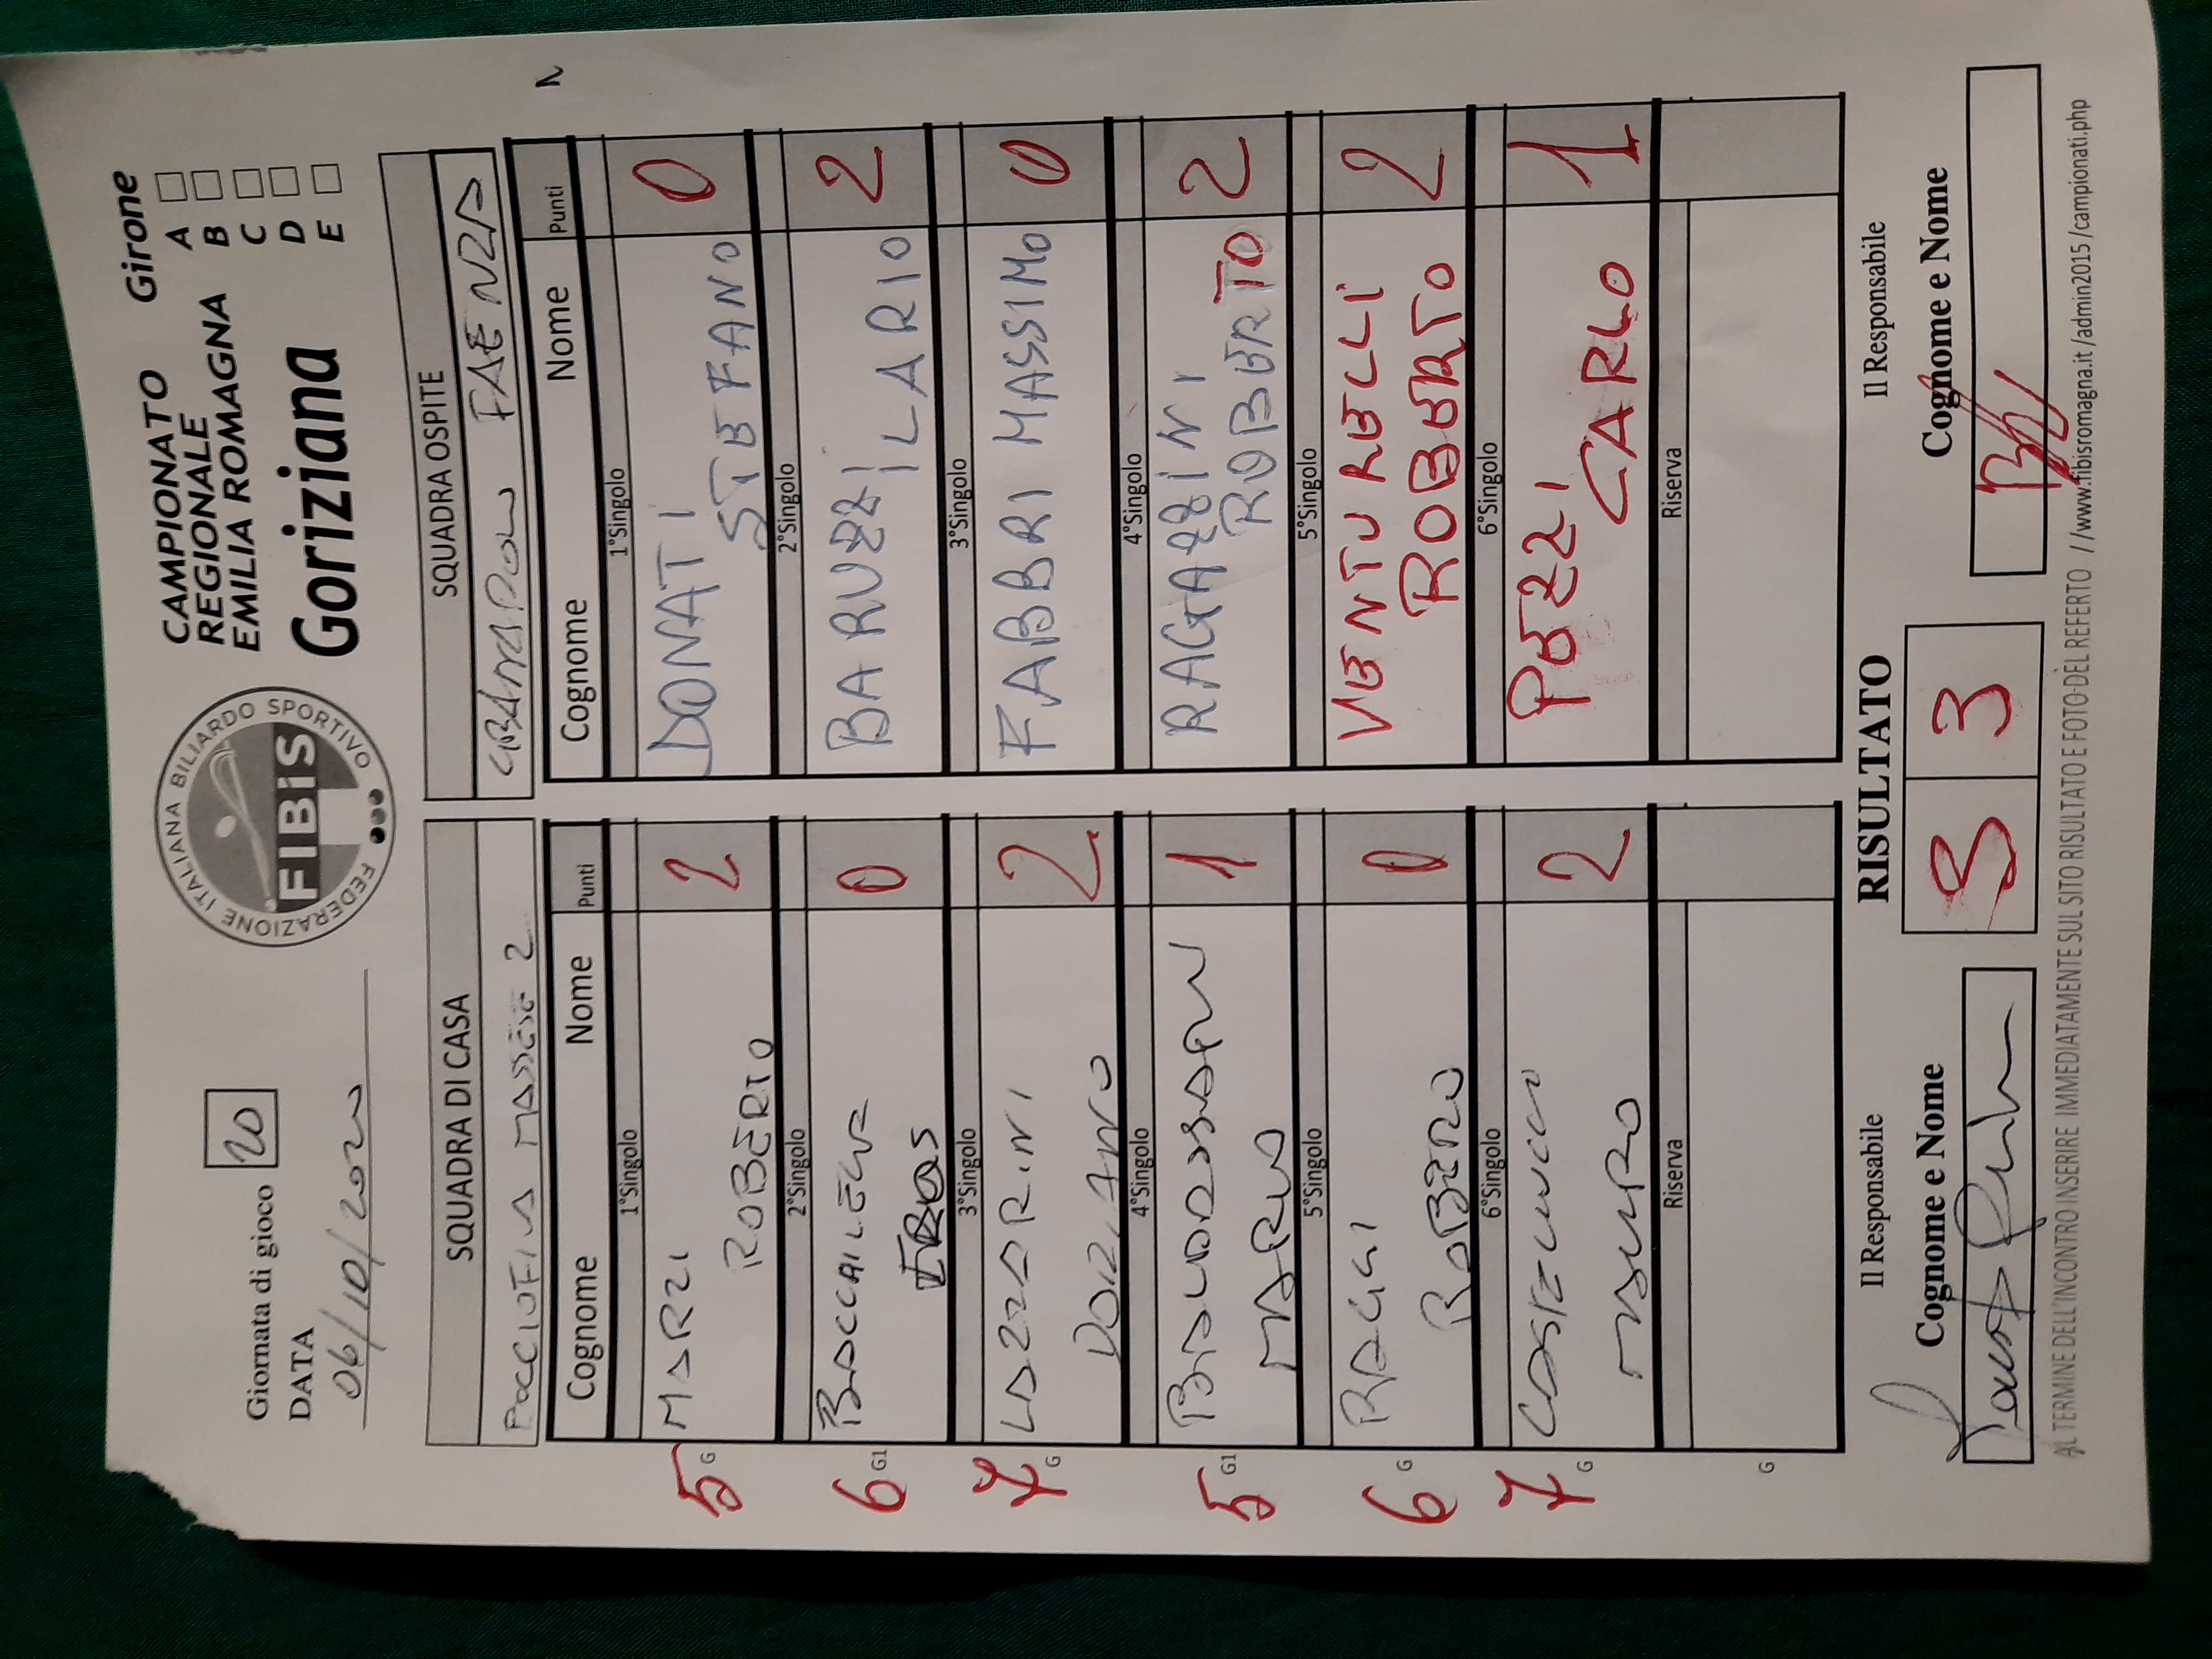 Giornata di gioco 20
DATA
06/10/2020
FEDERAZIONE ITALIANA BILIARDO SPORTIVO
FIBiS
CAMPIONATO
REGIONALE
EMILIA ROMAGNA
Goriziana
Girone
A
B
C
D
E
SQUADRA DI CASA
MASSESE 2
SQUADRA OSPITE
FAENZA
Cognome Nome Punti
Cognome Nome Punti
1°Singolo
1°Singolo
5 G MARZI ROBERTO 2
DONATI STEFANO 0
2°Singolo
2°Singolo
6 G1 0
BARUZZI ILARIO 2
3°Singolo
3°Singolo
7 G LAZZARINI 2
FABBRI MASSIMO 0
4°Singolo
4°Singolo
5 G1 MARIO 1
RAGAZZINI ROBERTO 2
5°Singolo
5°Singolo
6 G RAGGI ROBERTO 0
VENTURELLI ROBERTO 2
6°Singolo
6°Singolo
7 G MAURO 2
PEZZI CARLO 1
Riserva
Riserva
G
Il Responsabile
Cognome e Nome
RISULTATO
3 3
Il Responsabile
Cognome e Nome
AL TERMINE DELL'INCONTRO INSERIRE IMMEDIATAMENTE SUL SITO RISULTATO E FOTO DEL REFERTO //www.fibisromagna.it/admin2015/campionati.php